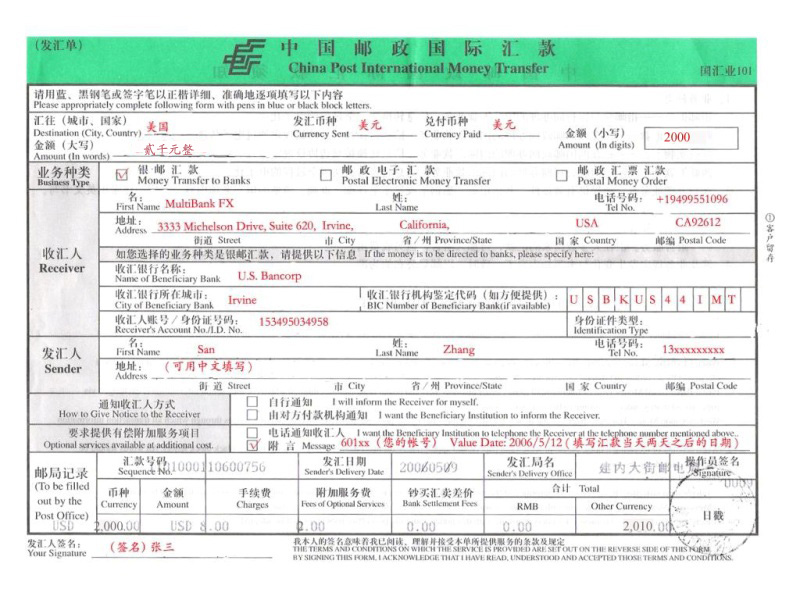 (发汇单)
中国邮政国际汇款
China Post International Money Transfer
国汇业101
请用蓝、黑钢笔或签字笔以正楷详细、准确地逐项填写以下内容
Please appropriately complete following form with pens in blue or black block letters.
汇往（城市、国家） 美国 发汇币种 美元 兑付币种 美元
Destination (City, Country) Currency Sent Currency Paid
金额（小写） 2000
Amount (In digits)
金额（大写） 贰千元整
Amount (In words)
业务种类 银邮汇款 邮政电子汇款 邮政汇票汇款
Business Type Money Transfer to Banks Postal Electronic Money Transfer Postal Money Order
收汇人
Receiver
名： MultiBank FX 姓： 电话号码： +19499551096
First Name Last Name Tel No.
地址： 3333 Michelson Drive, Suite 620, Irvine, California, USA CA92612
Address
街道 Street 市 City 省／州 Province/State 国家 Country 邮编 Postal Code
如您选择的业务种类是银邮汇款，请提供以下信息 If the money is to be directed to banks, please specify here:
收汇银行名称： U.S. Bancorp
Name of Beneficiary Bank
收汇银行所在城市： Irvine 收汇银行机构鉴定代码（如方便提供）： USBKUS44IMT
City of Beneficiary Bank BIC Number of Beneficiary Bank(if available)
收汇人账号／身份证号码： 153495034958 身份证件类型：
Receiver's Account No./I.D. No. Identification Type
发汇人
Sender
名： San 姓： Zhang 电话号码： 13xxxxxxxxx
First Name Last Name Tel No.
地址： （可用中文填写）
Address
街道 Street 市 City 省／州 Province/State 国家 Country 邮编 Postal Code
通知收汇人方式
How to Give Notice to the Receiver
自行通知 I will inform the Receiver for myself.
由对方付款机构通知 I want the Beneficiary Institution to inform the Receiver.
要求提供有偿附加服务项目
Optional services available at additional cost.
电话通知收汇人 I want the Beneficiary Institution to telephone the Receiver at the telephone number mentioned above..
附言 Message 601xx（您的帐号） Value Date: 2006/5/12（填写汇款当天两天之后的日期）
邮局记录
(To be filled
out by the
Post Office)
汇款号码 11000110600756 发汇日期 20060509 发汇局名 建内大街邮电 操作员签名
Sequence No. Sender's Delivery Date Sender's Delivery Office Signature
币种 金额 手续费 附加服务费 钞买汇卖差价 合计 Total
Currency Amount Charges Fees of Optional Services Bank Settlement Fees RMB Other Currency
日戳
USD 2,000.00 USD 8.00 2.00 0.00 0.00 2,010.00
发汇人签名： （签名）张三
Your Signature
我本人的签名意味着我已阅读、理解并接受本单所提供服务的条款及规定
THE TERMS AND CONDITIONS ON WHICH THE SERVICE IS PROVIDED ARE SET OUT ON THE REVERSE SIDE OF THIS FORM.
BY SIGNING THIS FORM, I ACKNOWLEDGE THAT I HAVE READ, UNDERSTOOD AND ACCEPTED THOSE TERMS AND CONDITIONS.
①客户留存